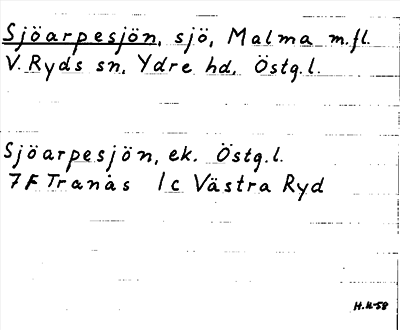 Sjöarpesjön, sjö, Malma m.fl.
V. Ryds sn, Ydre hd, Östg.l.
Sjöarpesjön, ek. Östg.l.
7F Tranås 1c Västra Ryd